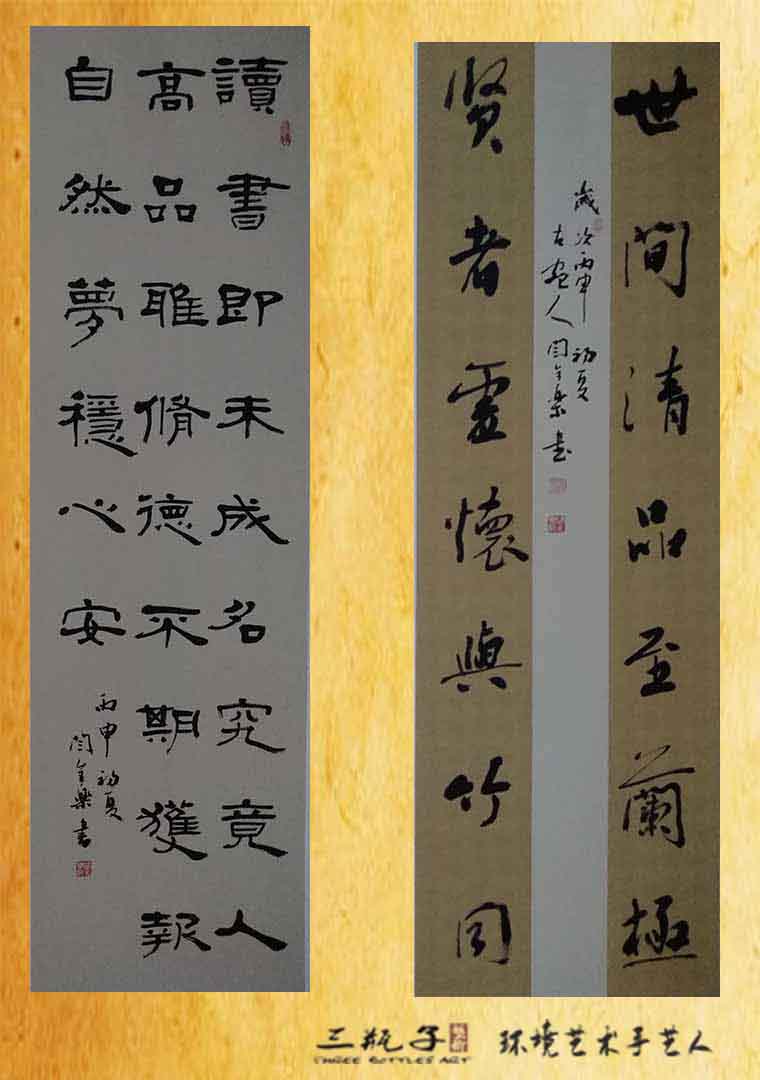 讀書即未成名究竟人
髙品雅脩德不期獲報
自然夢穩心安
丙申初夏
閆樂書
世間清品至蘭極
賢者虛懷與竹同
歲次丙申初夏
古人閆樂書
三瓶子
THREE BOTTLES ART
环境艺术手艺人